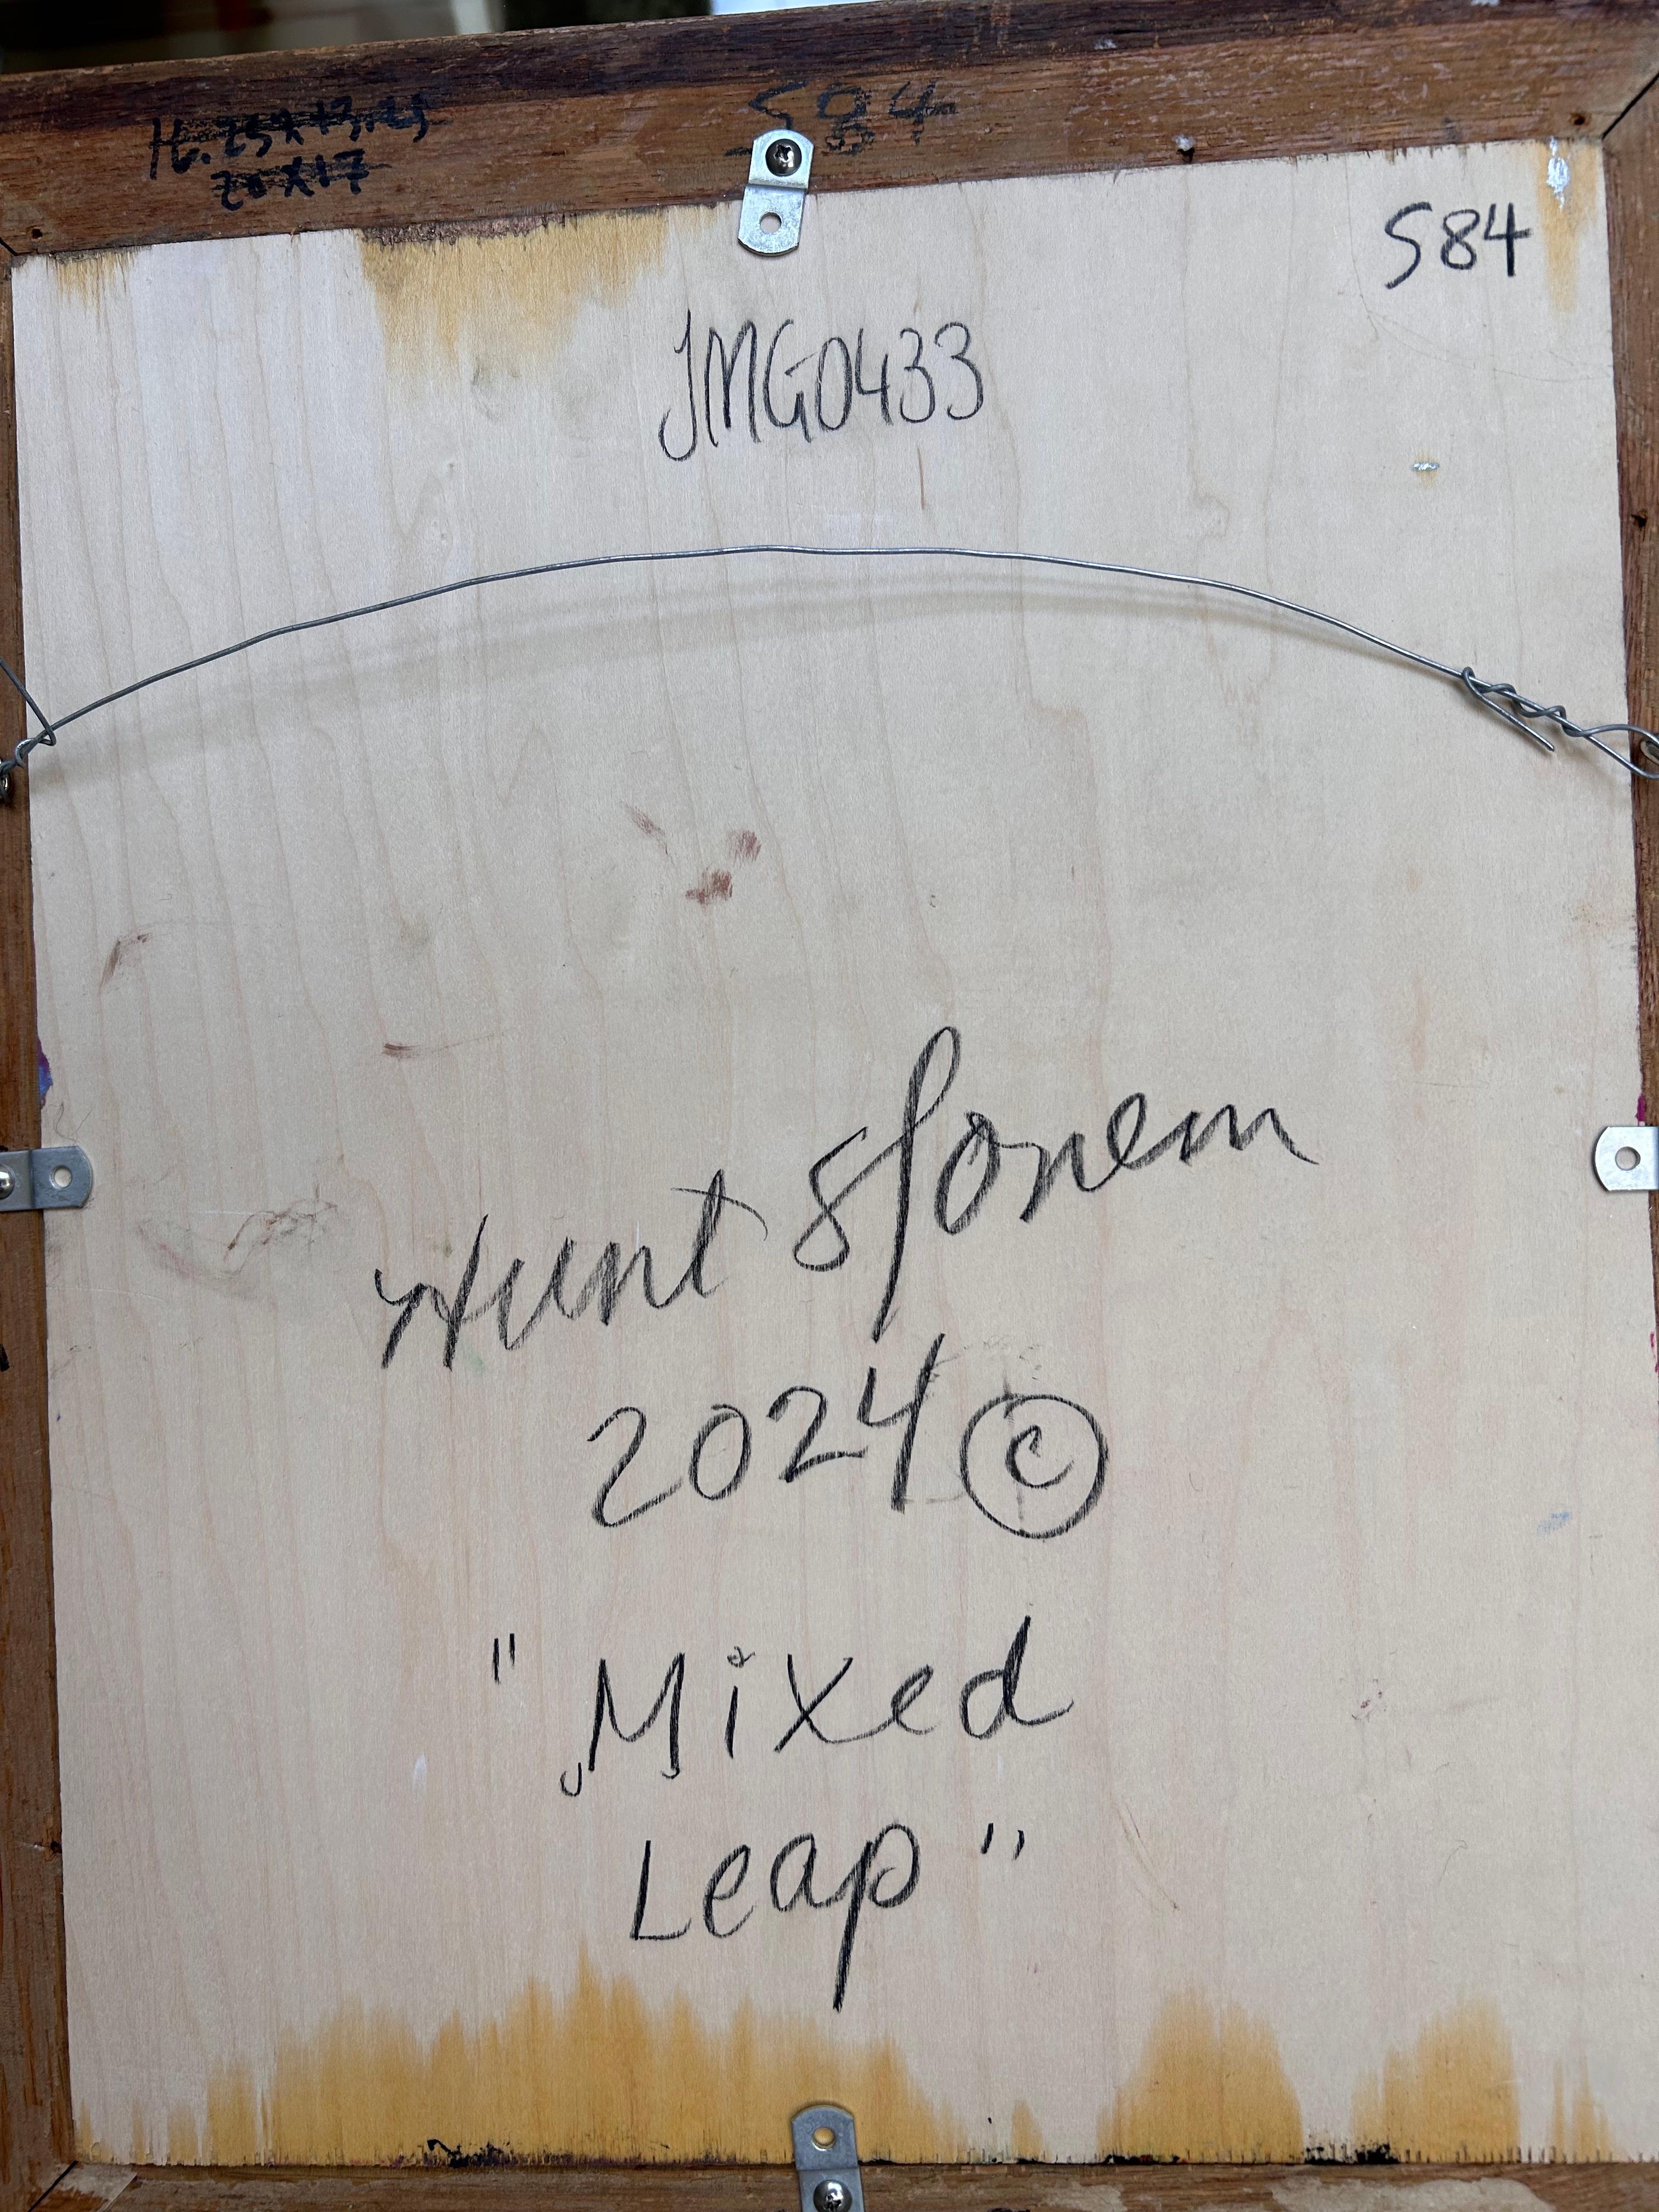 584
16.25x13.25
20x17
584
JMG0433
Hunt Slonem
2024 ©
"Mixed
Leap"